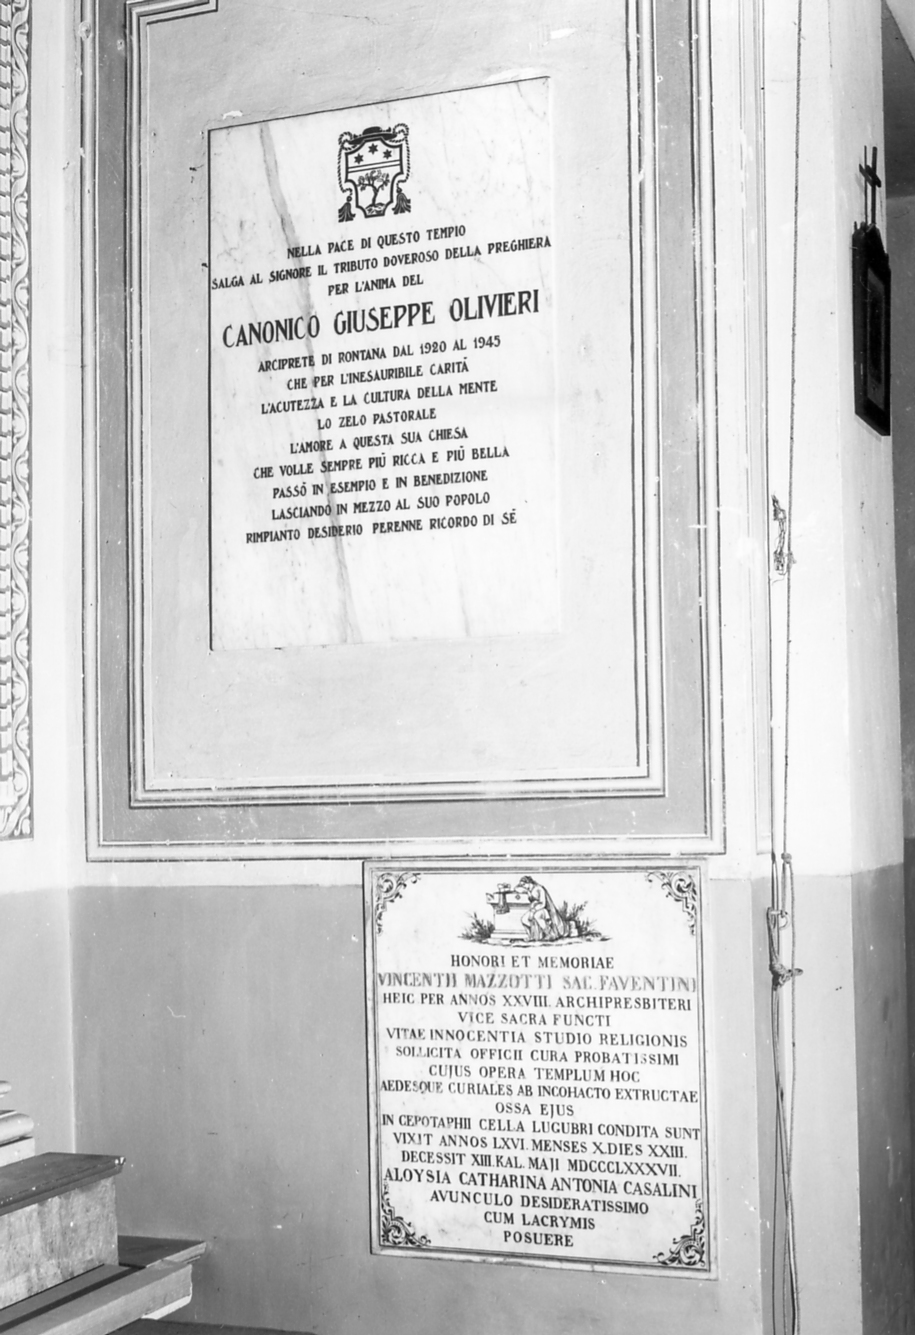 NELLA PACE DI QUESTO TEMPIO
SALGA AL SIGNORE IL TRIBUTO DOVEROSO DELLA PREGHIERA
PER L'ANIMA DEL
CANONICO GIUSEPPE OLIVIERI
ARCIPRETE DI RONTANA DAL 1920 AL 1945
CHE PER L'INESAURIBILE CARITÀ
L'ACUTEZZA E LA CULTURA DELLA MENTE
LO ZELO PASTORALE
L'AMORE A QUESTA SUA CHIESA
CHE VOLLE SEMPRE PIÙ RICCA E PIÙ BELLA
PASSÒ IN ESEMPIO E IN BENEDIZIONE
LASCIANDO IN MEZZO AL SUO POPOLO
RIMPIANTO DESIDERIO PERENNE RICORDO DI SÈ
HONORI ET MEMORIAE
VINCENTII MAZZOTTI SAC. FAVENTINI
HEIC PER ANNOS XXVIII. ARCHIPRESBITERI
VICE SACRA FUNCTI
VITAE INNOCENTIA STUDIO RELIGIONIS
SOLLICITA OFFICII CURA PROBATISSIMI
CUJUS OPERA TEMPLUM HOC
AEDESQUE CURIALES AB INCOHACTO EXTRUCTAE
OSSA EJUS
IN CEPOTAPHII CELLA LUGUBRI CONDITA SUNT
VIXIT ANNOS LXVI. MENSES X. DIES XXIII.
DECESSIT XIII. KAL. MAJI MDCCCLXXXVII.
ALOYSIA CATHARINA ANTONIA CASALINI
AVUNCULO DESIDERATISSIMO
CUM LACRYMIS
POSUERE